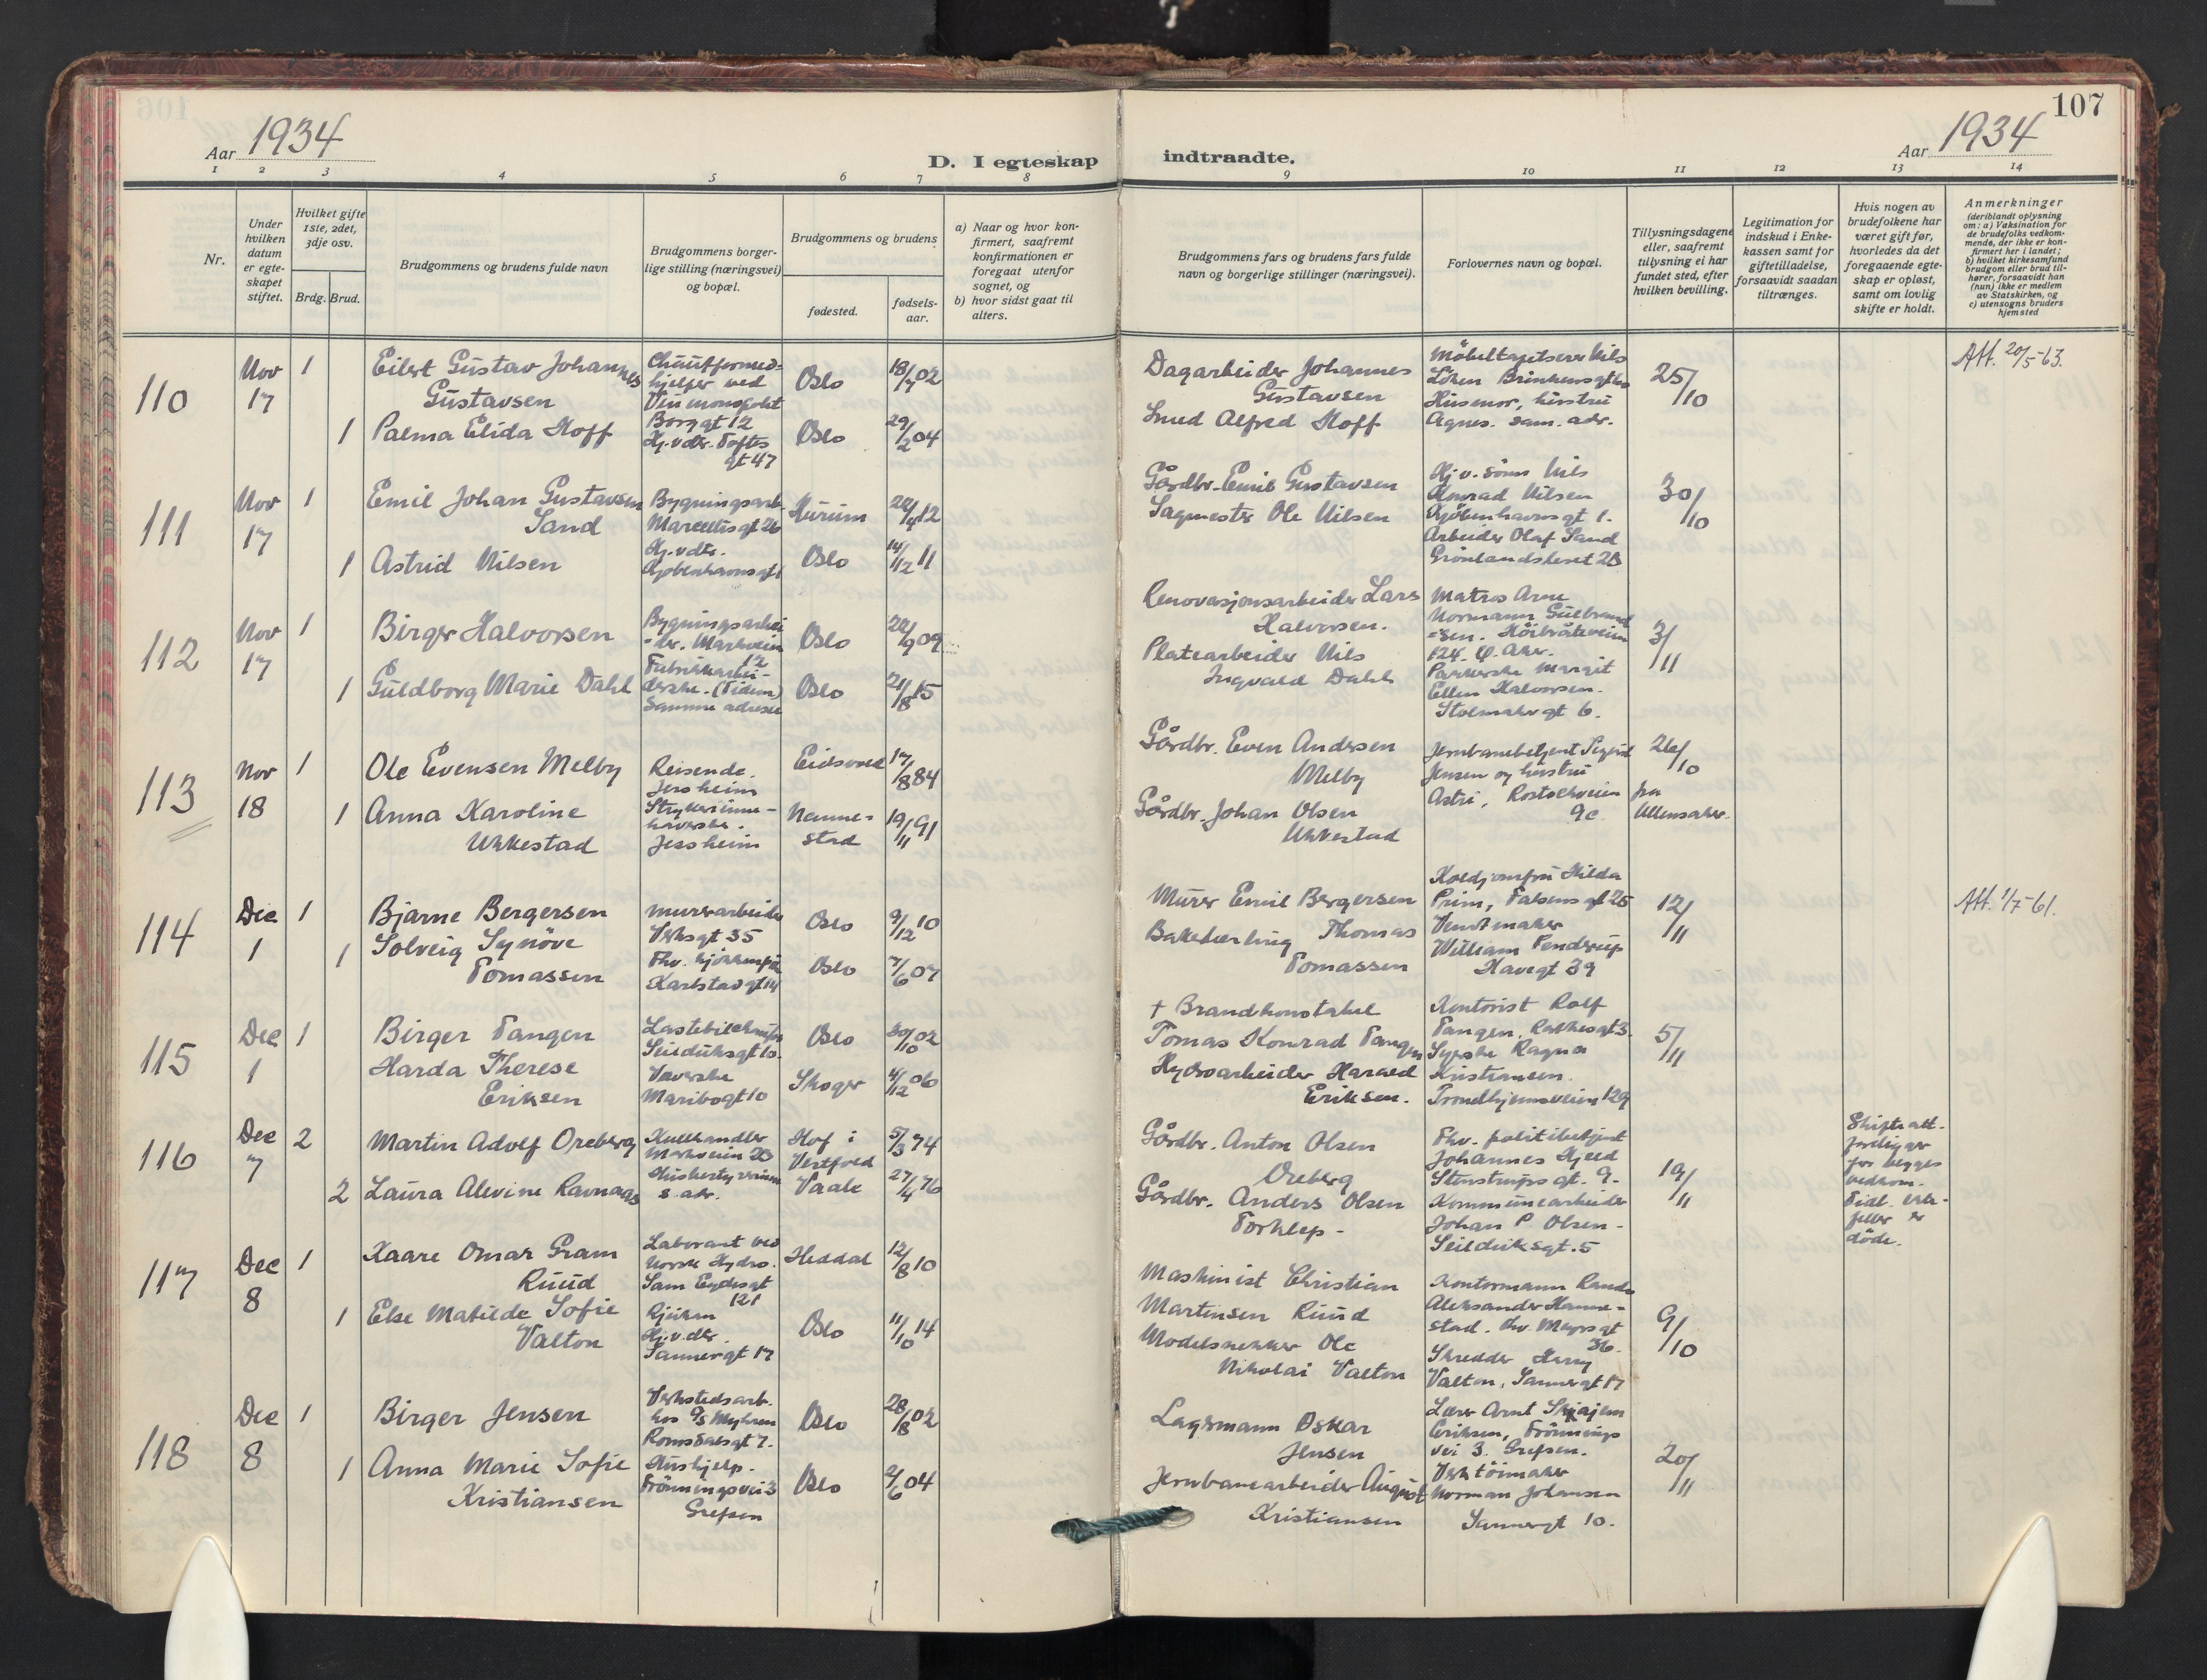 107
Aar 1934
D. I egteskap indtraadte.
Aar 1934
1 2 3 4 5 6 7 8 9 10 11 12 13 14
Nr.
Under
hvilken
datum
er egte-
skapet
stiftet.
Hvilket gifte
1ste, 2det,
3dje osv.
Brdg. Brud.
Brudgommens og brudens fulde navn
Brudgommens borger-
lige stilling (næringsvei)
og bopæl.
Brudgommens og brudens
fødested.
fødsels-
aar.
a) Naar og hvor kon-
firmert, saafremt
konfirmationen er
foregaat utenfor
sognet, og
b) hvor sidst gaat til
alters.
Brudgommens fars og brudens fars fulde
navn og borgerlige stillinger (næringsvei).
Forlovernes navn og bopæl.
Tillysningsdagene
eller, saafremt
tillysning ei har
fundet sted, efter
hvilken bevilling.
Legitimation for
indskud i Enke-
kassen samt for
giftetilladelse,
forsaavidt saadan
tiltrænges.
Hvis nogen av
brudefolkene har
været gift før,
hvorledes da det
foregaaende egte-
skap er opløst,
samt om lovlig
skifte er holdt.
Anmerkninger
(deriblandt oplysning
om: a) Vaksination for
de brudefolks vedkom-
mende, der ikke er kon-
firmert her i landet;
b) hvilket kirkesamfund
brudgom eller brud til-
hører, forsaavidt han
(hun) ikke er medlem
av Statskirken, og
c) utensogns bruders
hjemsted
110
Nov
17
1
Eilert Gustav Johannes
Gustavsen
hjelper ved
Oslo
18/7 02
1
Palma Elida Hoff
Borggt 12
Hj.v. dtr. Toftes
gt 47
Oslo
29/2 04
Dagarbeider Johannes
Gustavsen
Smed Alfred Hoff
Møbeltapetserer Nils
Husmor, hustru
Agnes. sam. adr.
25/10
Att. 20/5-63.
111
Nov
17
1
Emil Johan Gustavsen
Sand
Bygningsarb.
Marcellisgt 26
Hurum
22/4 12
1
Astrid Nilsen
Hj.v. dtr.
Kjøbenhavnsgt 1
Oslo
14/12 11
Gårdbr. Emil Gustavsen
Sagmester Ole Nilsen
Hj.v. sønn Nils
Konrad Nilsen
Kjøbenhavnsgt 1.
Arbeider Olaf Sand
Grønlandsleret 28
30/10
112
Nov
17
1
Birger Halvorsen
Bygningsarbei
-der. Markveien
12
Oslo
22/9 09
1
Guldborg Marie Dahl
Fabrikkarbei-
derske. (Tidem)
Samme adresse
Oslo
21/8 15
Renovasjonsarbeider Lars
Halvorsen.
Platearbeider Nils
Ingvald Dahl
Matros Arne
Normann Gulbrand
-sen. Høibråtenveien
124. Ø. Aker.
Pakkerske Margit
Ellen Halvorsen.
Stolmakergt 6.
3/11
113
Nov
18
1
Ole Evensen Melby
Reisende.
Jessheim
Eidsvold
17/8 84
1
Anna Karoline
Ukkestad
Strykeriinne-
haverske.
Jessheim
Nanne-
stad
19/11 91
Gårdbr. Even Andersen
Melby
Gårdbr. Johan Olsen
Ukkestad
Jernbanebetjent Sigurd
Jensen og hustru
Astri, Rostockveien
9c.
26/10
fra
Ullensaker.
114
Dec
1
1
Bjarne Bergersen
Murerarbeider
Verksgt 35
Oslo
9/12 10
1
Solveig Synøve
Tomassen
Fhv. kjøkkenpike
Karlstadgt 14
Oslo
7/6 07
Murer Emil Bergersen
Bakelærling Thomas
Tomassen
Koldjomfru Hilda
Prim, Falsens gt 25
William Fenderup
Havegt 39
12/11
Att. 1/7-61.
115
Dec
1
1
Birger Tangen
Seilduksgt 10.
Oslo
30/10 02
Harda Therese
Eriksen
Væverske
Maribogt 10
Skoger
4/12 06
+ Brandkonstabel
Tomas Konrad Tangen
Hydroarbeider Harald
Eriksen.
Kontorist Rolf
Tangen. Rathkesgt 3.
Syerske Ragna
Kristiansen.
Trondhjemsveien 129
5/11
116
Dec
7
2
Martin Adolf Oreberg
Kulhandler
Markveien 28
Hof i
Vestfold
5/3 74
2
Laura Alevine Ravnaas
Husbestyrerinne
s. adr.
Vaale
27/4 76
Gårdbr. Anton Olsen
Oreberg
Gårdbr. Anders Olsen
Torklep -
Fhv. politibetjent
Johannes Kjeld
Stenstrupsgt. 9.
Kommunearbeider
Johan P. Olsen -
Seilduksgt. 5
19/11
Skifteatt.
foreligger
for begges
vedkom.
Tidl. ekte-
feller er
døde.
117
Dec
8
1
Kaare Omar Gram
Ruud
Laborant ved
Norsk Hydro.
Sam Eydesgt
121
Rjukan
Heddal
12/8 10
1
Else Matilde Sofie
Valton
Hj.v. dtr.
Sannergt 17
Oslo
11/10 14
Maskinist Christian
Martinsen Ruud
Modelsnekker Ole
Nikolai Valton
Kontormann Rand
Aleksander Hanne-
stad. Thv. Meyersgt
36.
Skredder Harry
Valton, Sannergt 17
9/10
118
Dec
8
1
Birger Jensen
Verkstedsarb.
hos A/S Myhren
Romsdalsgt 7.
Oslo
28/8 02
1
Anna Marie Sofie
Kristiansen
Hushjelp.
Frønningsvei 3
Grefsen
Oslo
2/6 04
Lagermann Oskar
Jensen
Jernbanearbeider August
Kristiansen
Lærer Arnt Skjajem
Eriksen, Frønnings
vei 3. Grefsen.
Verktøimaker
Norman Johansen
Sannergt 10.
20/11